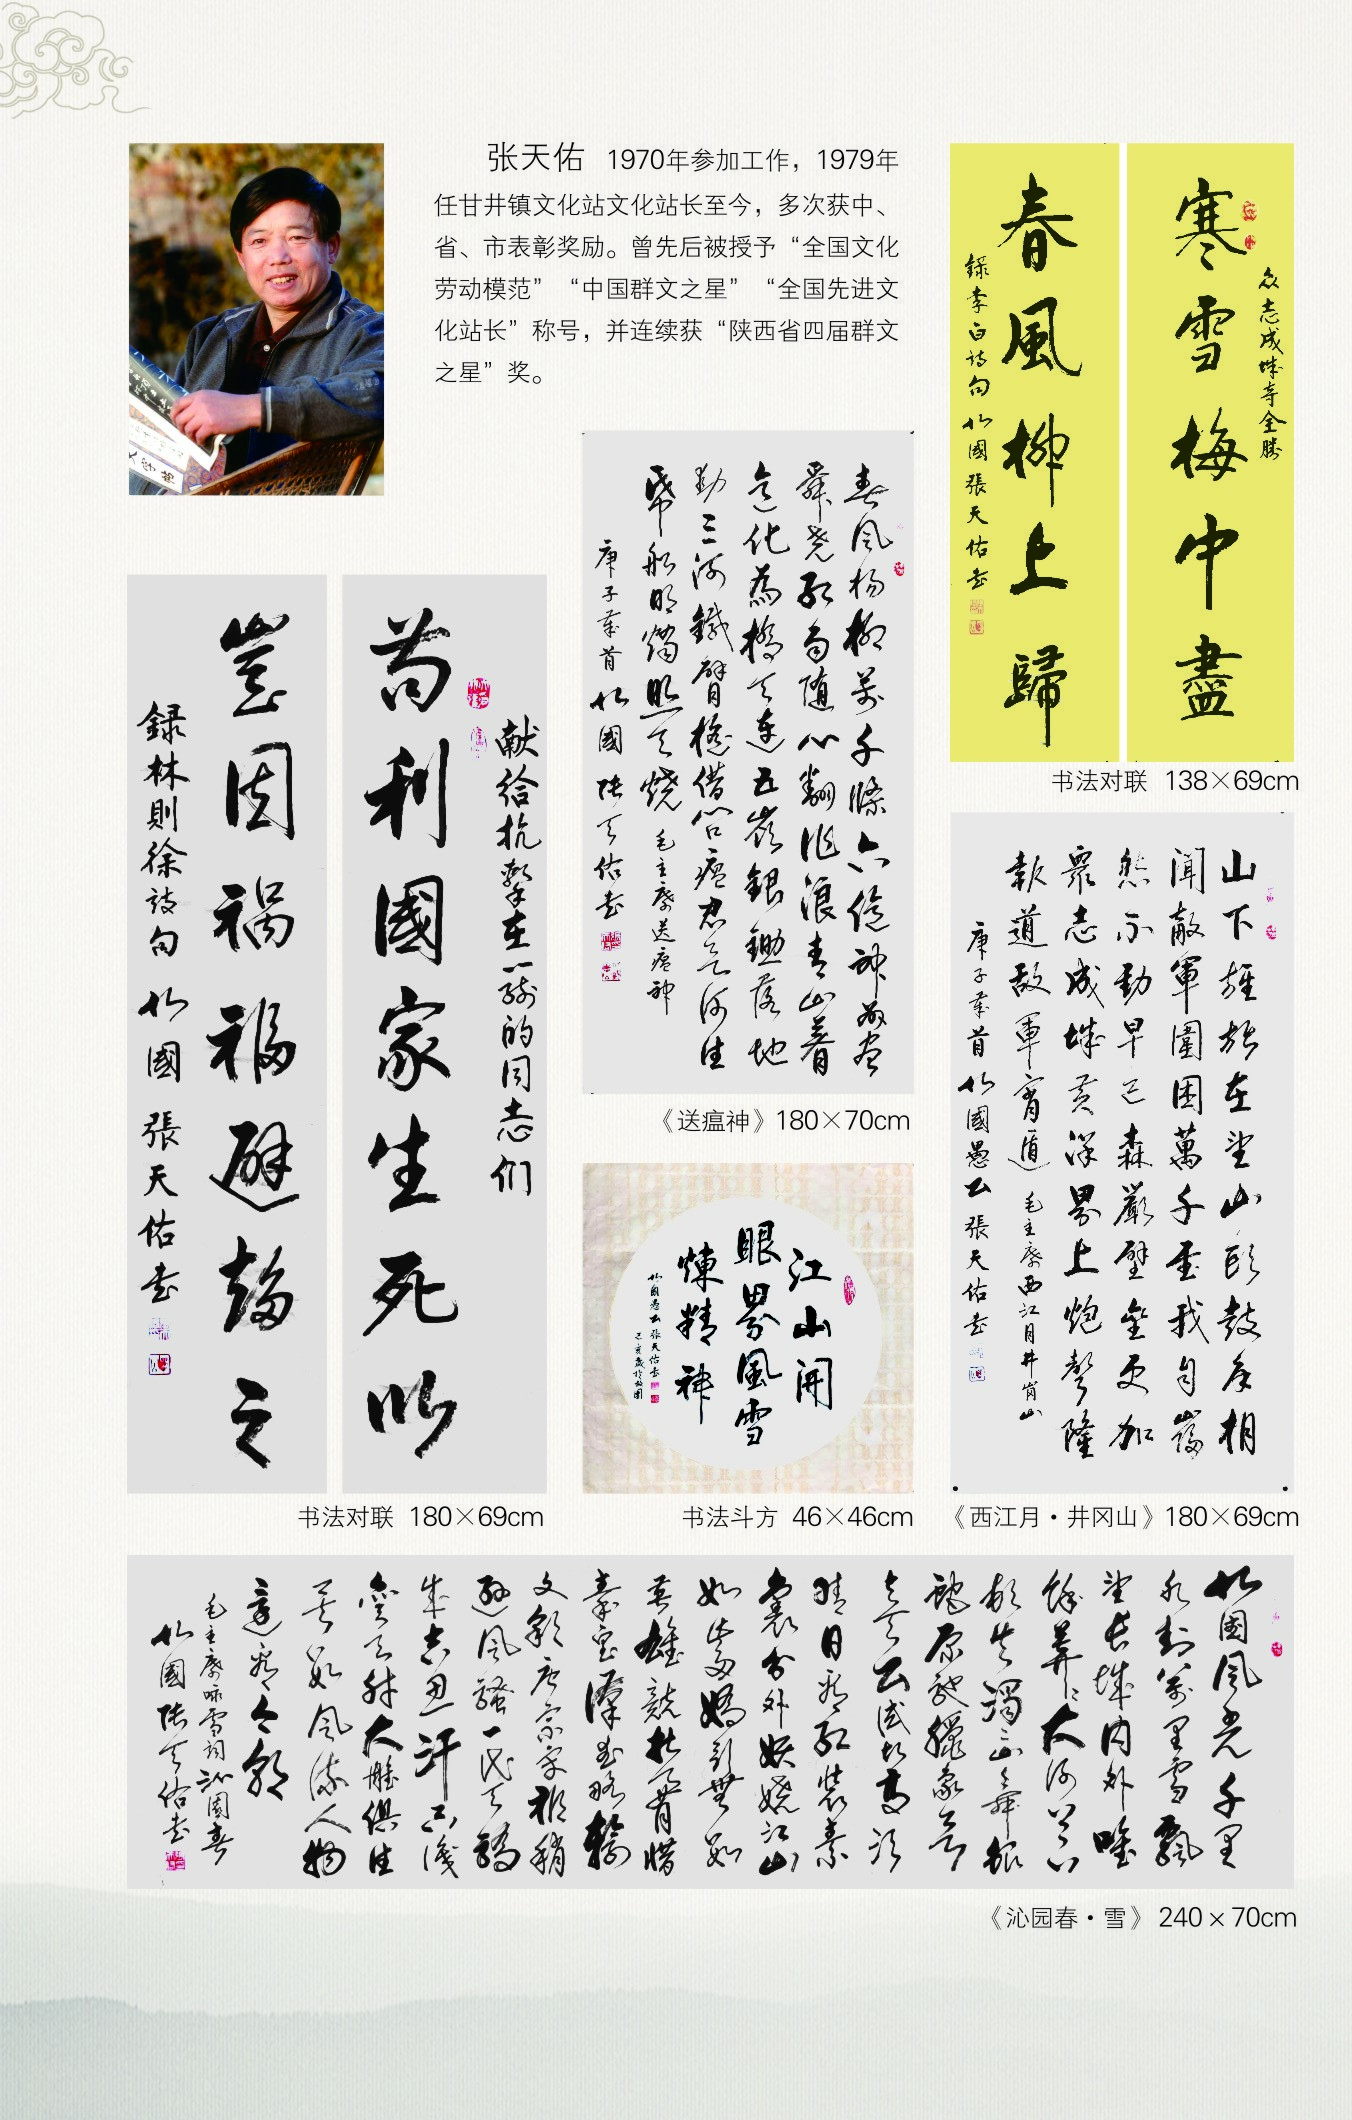 张天佑 1970年参加工作，1979年
任甘井镇文化站文化站长至今，多次获中、
省、市表彰奖励。曾先后被授予“全国文化
劳动模范”“中国群文之星”“全国先进文
化站长”称号，并连续获“陕西省四届群文
之星”奖。
众志成城夺全胜
寒雪梅中盡
春風柳上歸
録李白诗句 北國張天佑书
书法对联 138×69cm
春风杨柳万千條六億神州尽
舜尧红雨随心翻作浪青山着
意化為橋天连五岭銀鋤落地
动三河鐵臂摇借问瘟君欲何往
纸船明烛照天烧 毛主席送瘟神
庚子年首 北國 张天佑书
《送瘟神》180×70cm
献给抗击在一线的同志们
苟利國家生死以
豈因禍福避趋之
録林則徐诗句 北國 張天佑书
书法对联 180×69cm
江山開
眼界風雪
煉精神
北國愚公張天佑书
书法斗方 46×46cm
山下旌旗在望山頭鼓角相
闻敵軍圍困萬千重我自巋
然不動早已森嚴壁壘更加
眾志成城黄洋界上炮聲隆
報道敌軍宵遁 毛主席西江月井岗山
庚子年首 北國愚公 張天佑书
《西江月·井冈山》180×69cm
北国风光千里
冰封万里雪飘
望长城内外惟
餘莽莽大河上下
顿失滔滔山舞银
蛇原驰蠟象欲
与天公试比高须
晴日看红装素
裹分外妖娆江山
如此多嬌引無数
英雄競折腰惜
秦皇漢武略输
文采唐宗宋祖稍
逊风騷一代天骄
成吉思汗只识
弯弓射大雕俱往
矣数风流人物
还看今朝
毛主席咏雪词沁園春
北國 张天佑书
《沁园春·雪》240×70cm